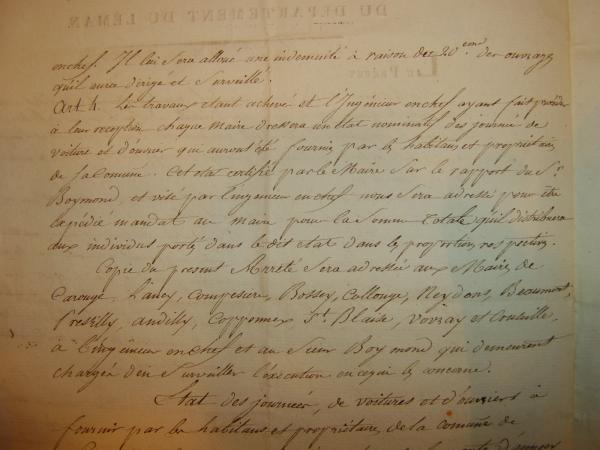 DU DEPARTEMENT DU LEMAN
en chef. Il lui sera alloué une indemnité à raison de 20eme des ouvrages
qu'il aura dirigé et Surveillé.
Art 4. Les travaux étant achevé et l'Ingénieur en chef ayant fait procéder
à leur reception chaque Maire dressera un état nominatif des journée de
voiture et d'ouvrier qui auront été fournie par les habitans et propriétaires
de sa Commune. Cet état certifié par le Maire Sur le rapport du Sr
Boymond, et visé par l'ingenieur en chef nous Sera adressé pour être
expédié mandat au Maire pour la Somme totale qu'il distribuera
aux individus portés dans le dit état dans les proportions respectives.
Copie du present Arreté Sera adressée aux Maires de
Carouge, Lancy, Compesiere, Bossey, Collonge, Neydens, Beaumont,
Presilly, andilly, Copponnex, St Blaise, Vovray et
à l'ingénieur en chef et au Sieur Boymond qui demeurent
chargés d'en Surveiller l'exécution en ce qui les concerne.
Etat des journées, de voitures et d'ouvriers à
fournir par les habitans et propriétaires, de la commune de